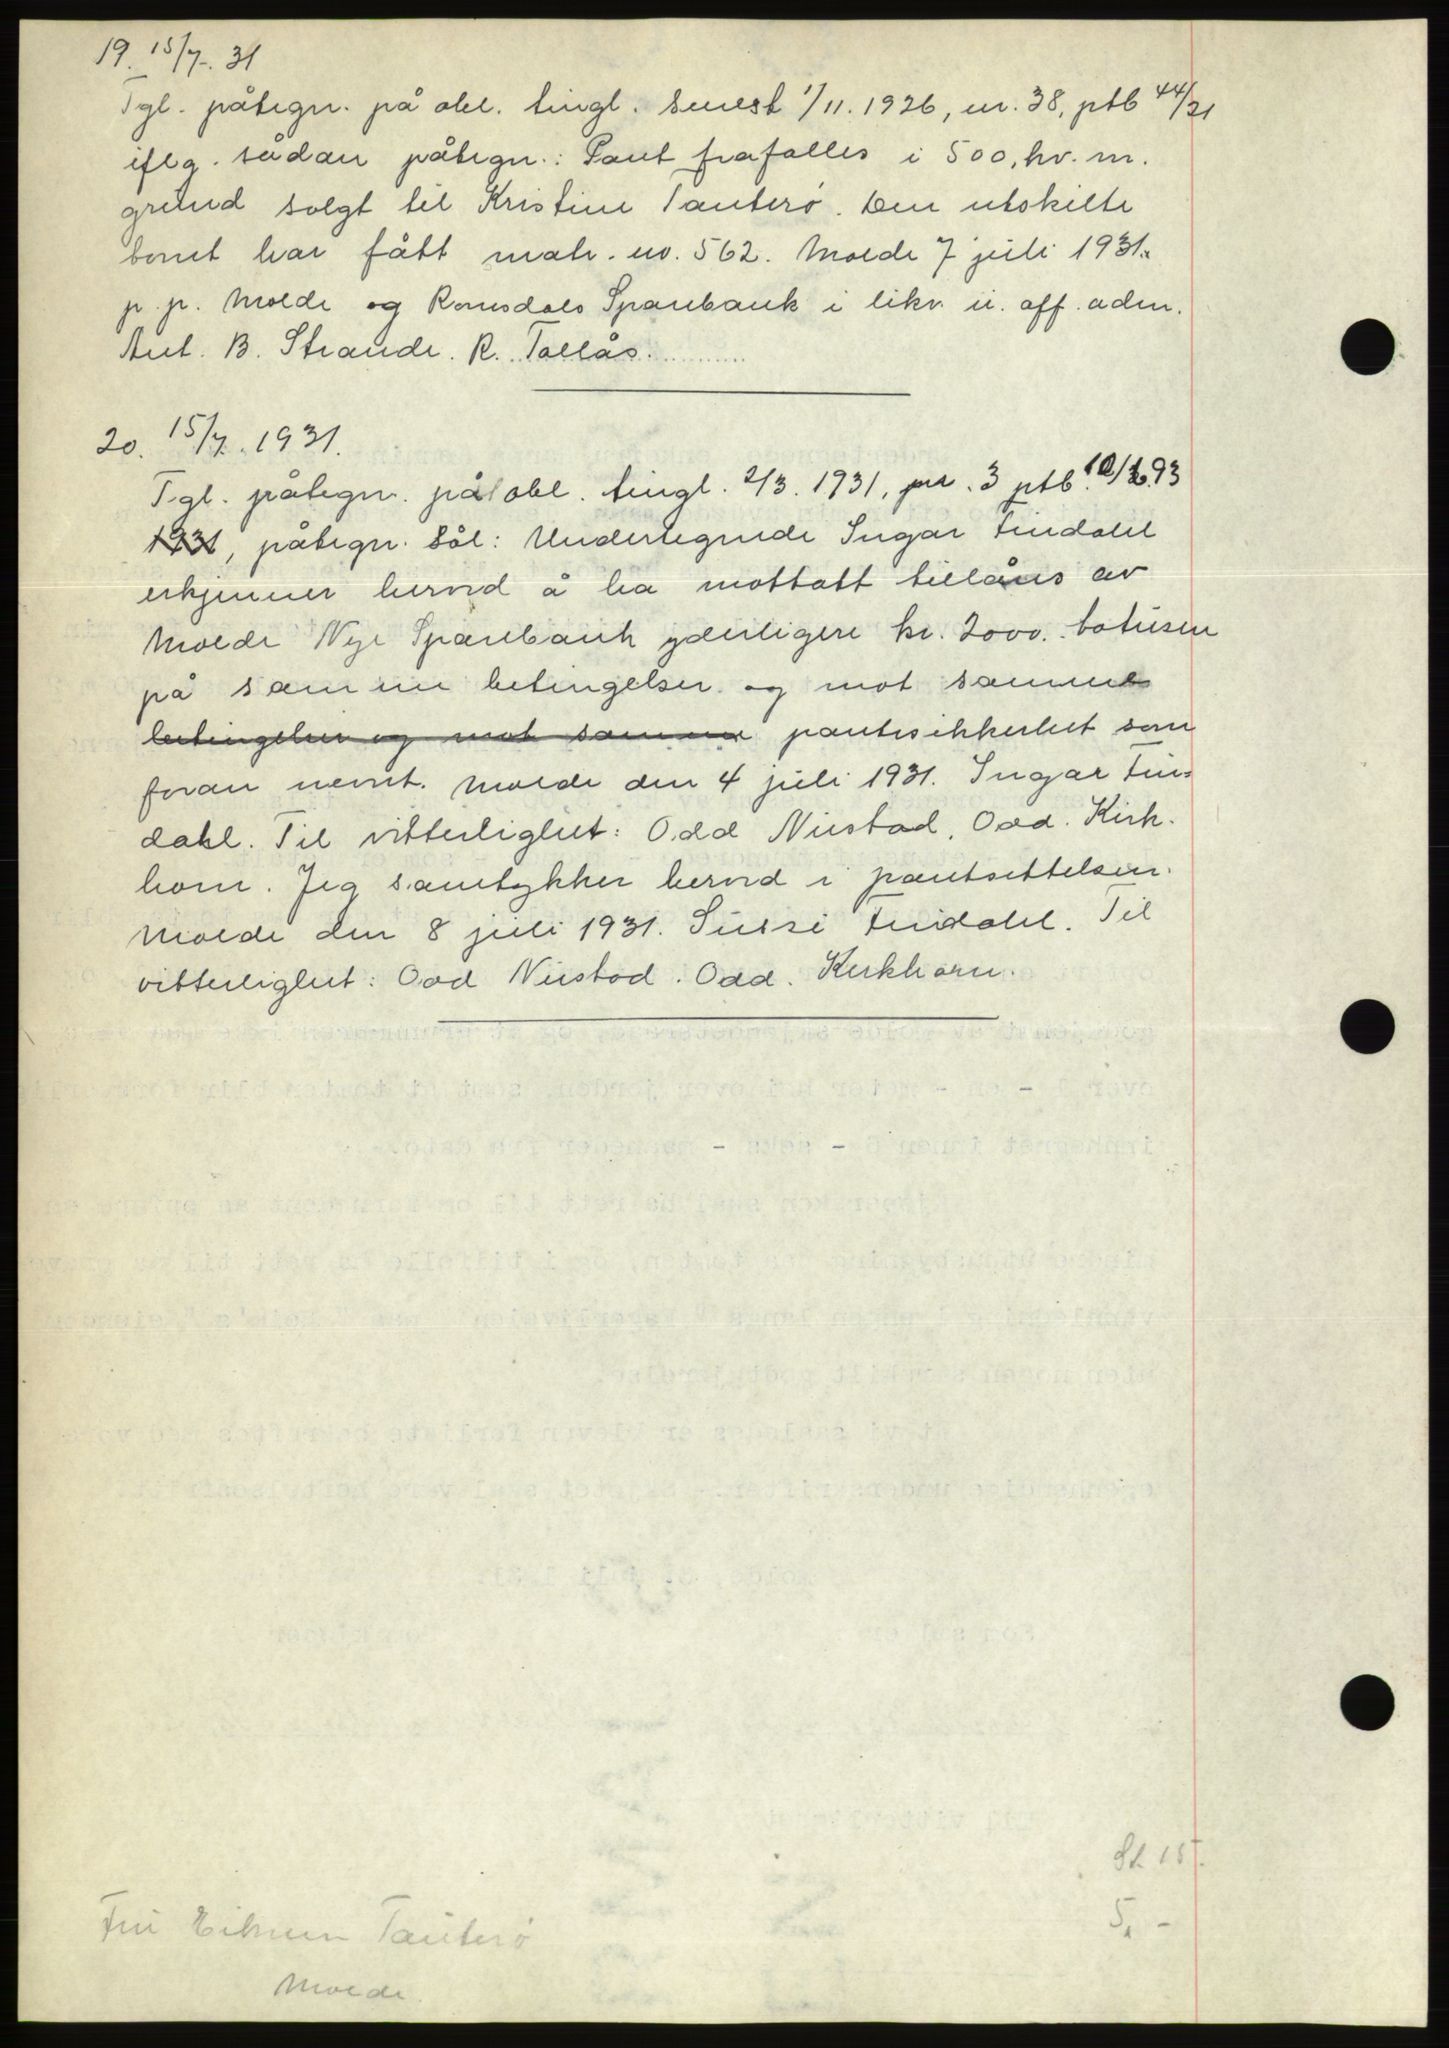 19. 15/7. 31
Tgl. påtegn. på obl. tingl. senest 1/11. 1926, nr. 38, ptb 44/21
iflg. sådan påtegn.: Pant frafalles i 500, kv. m.
grund solgt til Kristine Tauterø. Den utskilte
tomt har fått matr. no. 562. Molde 7 juli 1931.
p. p. Molde og Romsdals Sparebank i likv. u. off. adm.
Ant. B. Strande. R. Tollås.
20. 15/7. 1931.
Tgl. påtegn. på obl. tingl. 2/3. 1931, nr. 3 ptb.
1931, påtegn. Sål: Undertegnede Ingar Findahl
erkjenner herved å ha mottatt tillåns av
Molde Nye Sparebank yderligere kr. 2000. totusen
på samme betingelser og mot samme
betingelser og mot samme pantesikkerhet som
foran nevnt. Molde den 4 juli 1931. Ingar Fin-
dahl. Til vitterlighet: Odd Nustad, Odd. Kirk.
horn. Jeg samtykker herved i pantsettelsen.
Molde den 8 juli 1931. Sussi Findahl. Til
vitterlighet: Odd Nustad. Odd. Kirkhorn.
St. 15.
5, -
Tauterø
Molde.